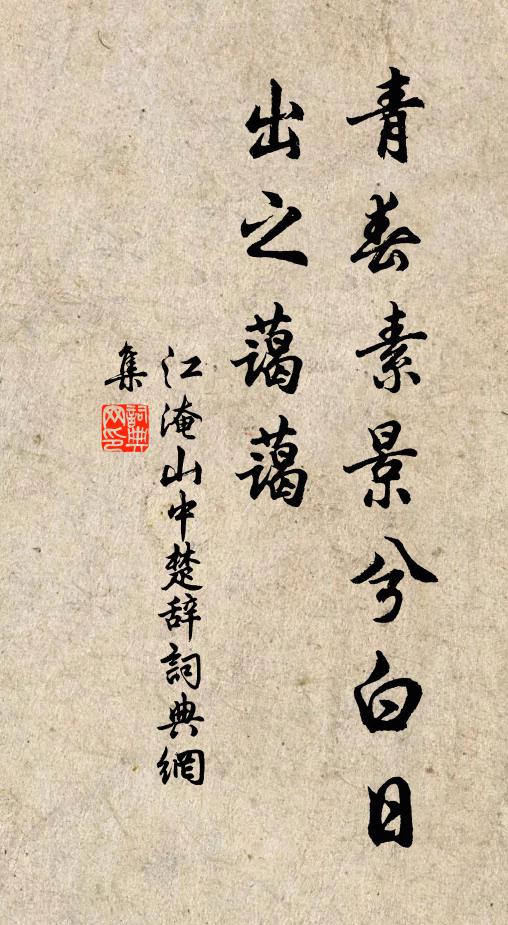 青春素景兮白日
出之藹藹
江淹山中楚辞詞典網
集
詞典
网印